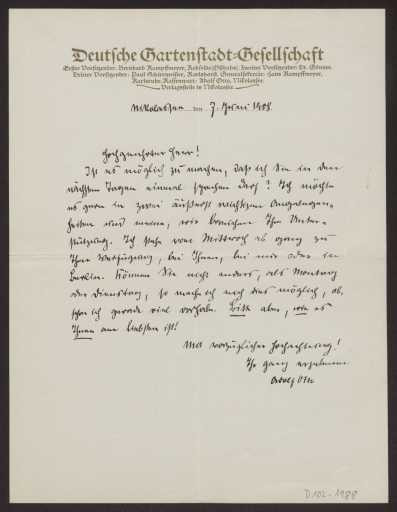 Deutsche Gartenstadt-Gesellschaft
Erster Vorsitzender: Bernhard Kampffmeyer, Rehfelde (Ostbahn); Zweiter Vorsitzender: Dr.
Dritter Vorsitzender: Paul Schurmeister, Karlshorst, Generalsekretär: Hans Kampffmeyer,
Karlsruhe, Kassenwart: Adolf Otto, Nikolassee.
Verlagsstelle in Nikolassee.
Nikolassee den 7. Juni 1908.
Hochgeehrter Herr!
Ist es möglich zu machen, daß ich Sie in den
nächsten Tagen einmal sprechen darf? Ich möchte
es gern in zwei äußerst wichtigen Angelegen-
heiten und meine, wir brauchen Ihre Unter-
stützung. Ich stehe vom Mittwoch ab ganz zu
Ihrer Verfügung, bei Ihnen, bei mir oder in
Berlin. Können Sie nicht anders, als Montag
oder Dienstag, so mache ich auch dies möglich, ob-
schon ich gerade viel vorhabe. Bitte aber, wie es
Ihnen am liebsten ist!
Mit vorzüglicher Hochachtung!
Ihr ganz ergebener
Adolf Otto
D.102-1988